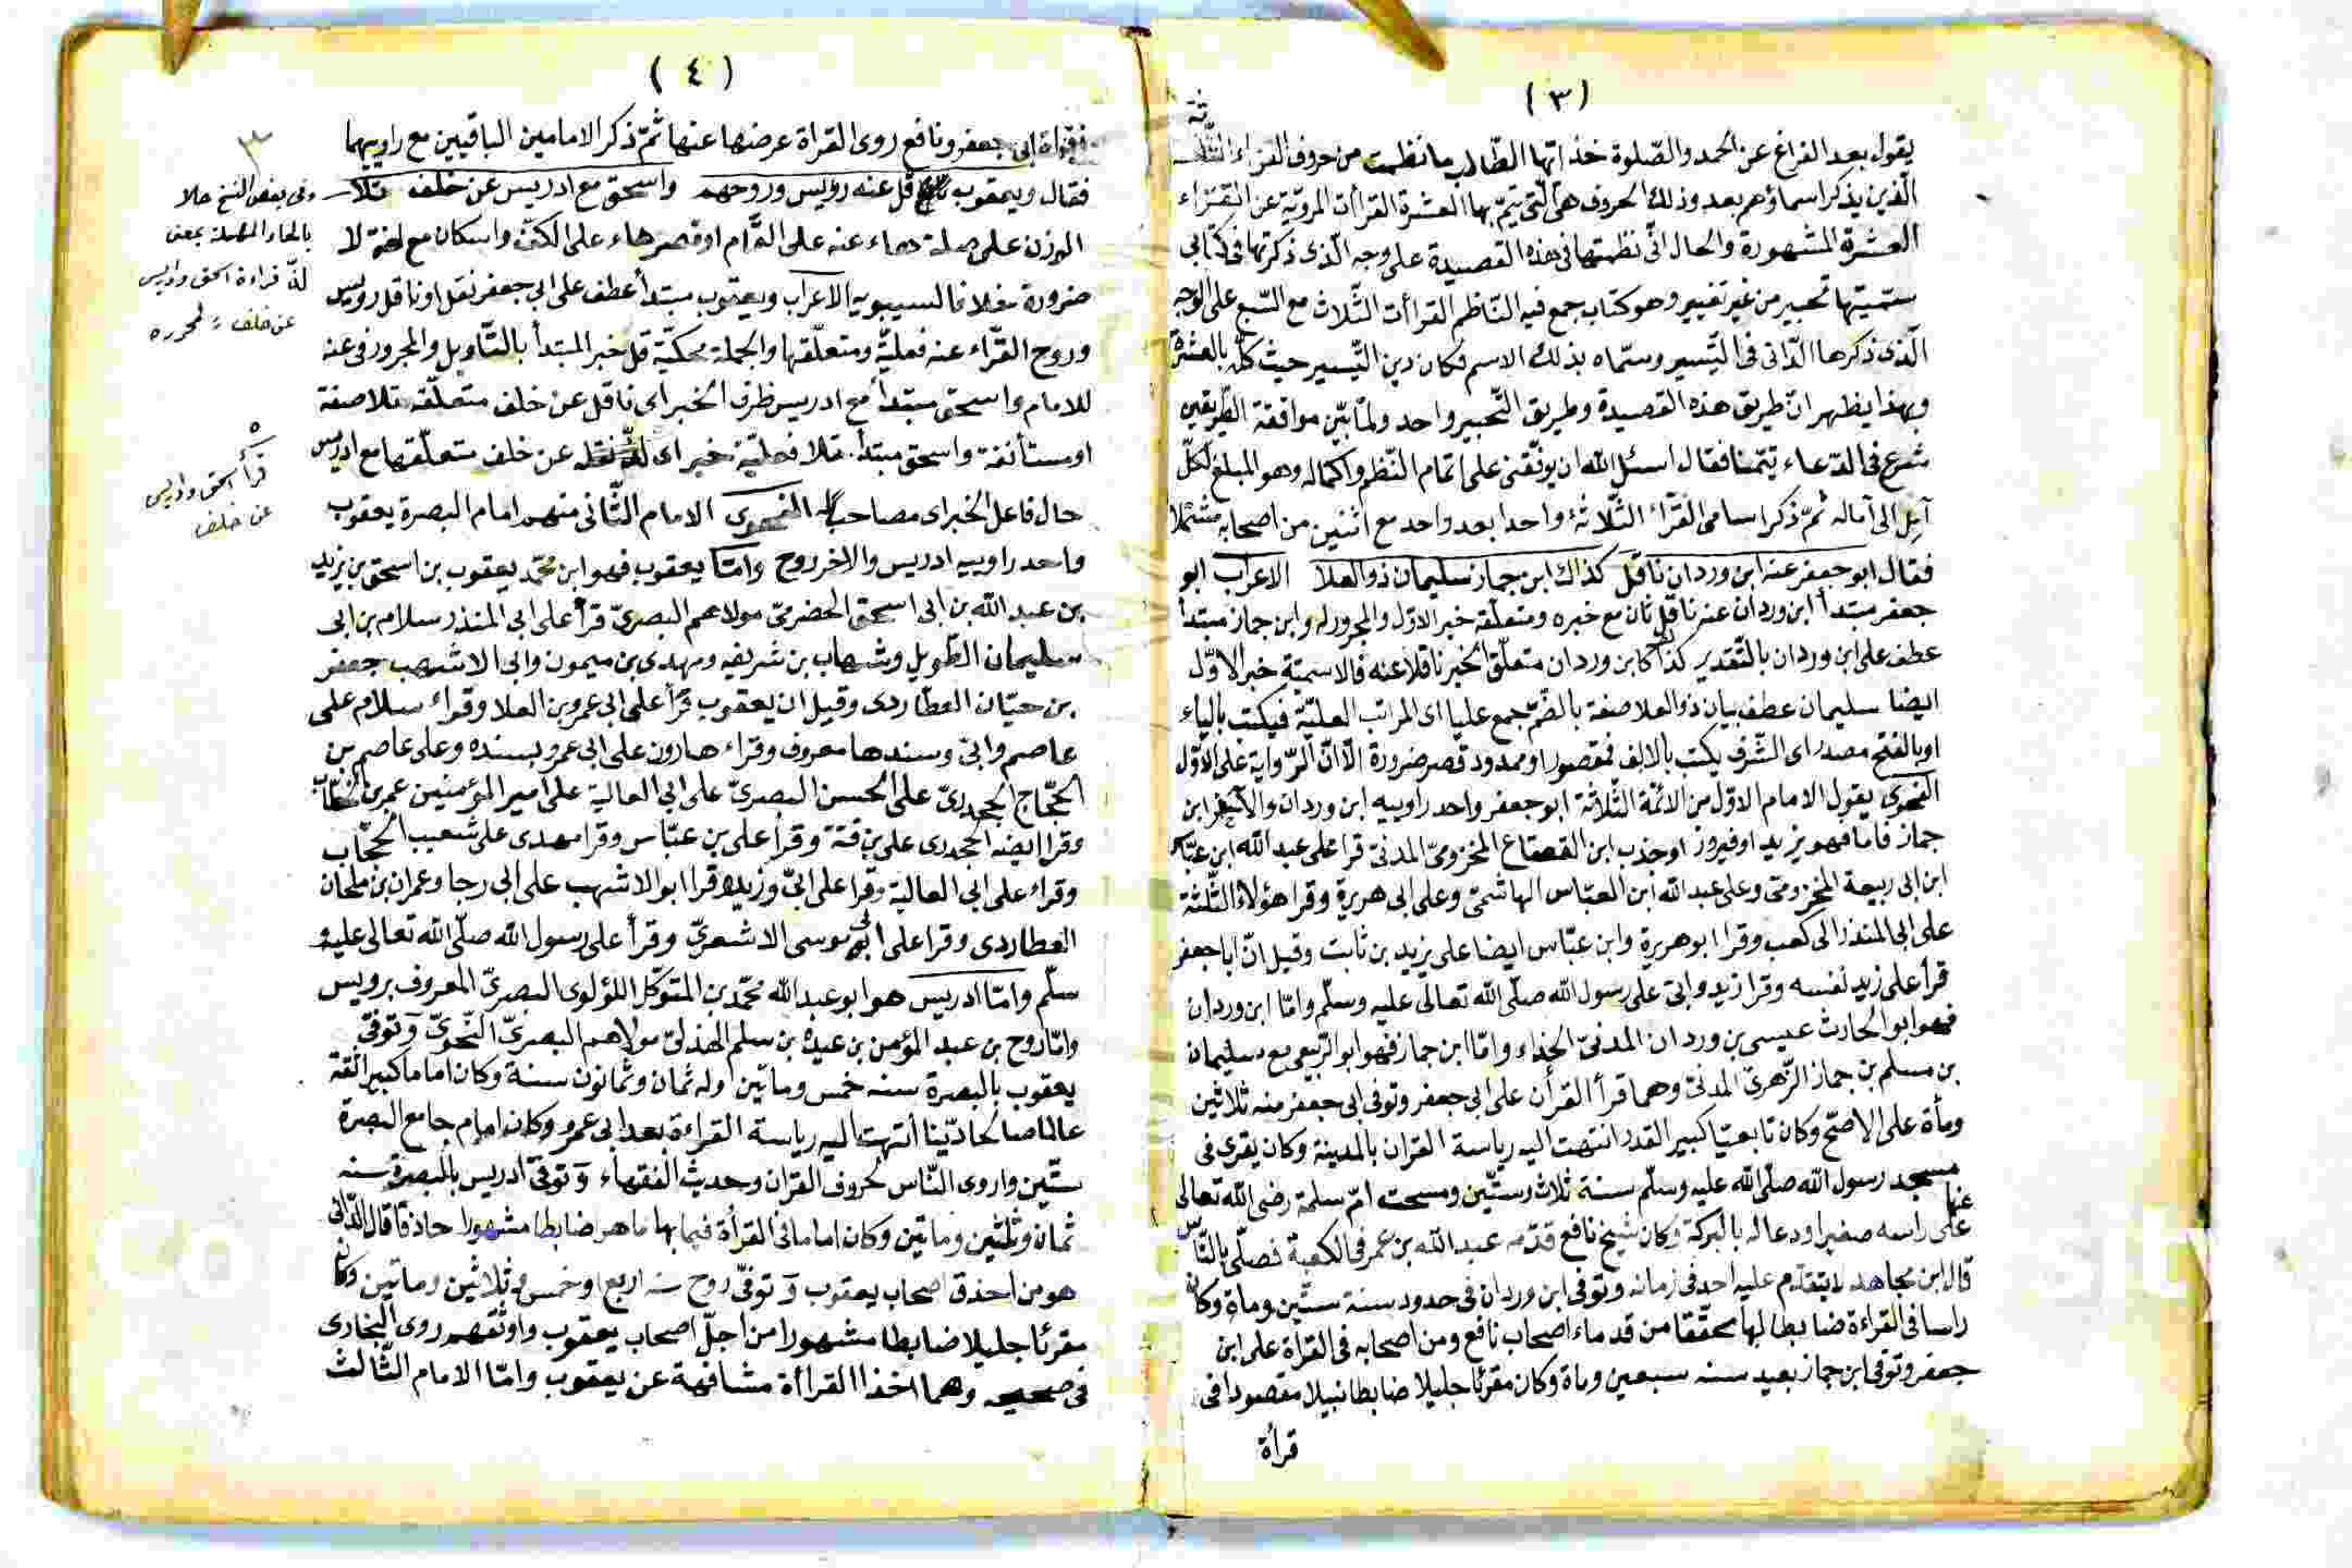 (٣)
يقول بعد الفراغ عن الحمد والصّلوة خذ ايّها الطّالب ما نظمت من حروف القراء الثّلثة
الّذين يذكر اسماؤهم بعد وذلك الحروف هى الّتى يتمّ بها العشرة القراأت المرويّة عن القرّاء
العشرة المشهورة والحال انّى نظمتها فى هذه القصيدة على وجه الّذى ذكرتها فى كتابى
سمّيتها تحبير من غير تغيير وهو كتاب جمع فيه النّاظم القراأت الثّلاث مع السّبع على الوجه
الّذى ذكرها الدّانى فى التّيسير وسمّاه بذلك الاسم فكان دين التّيسير حيث كمّل بالعشرة
وبهذا يظهر انّ طريق هذه القصيدة وطريق التّحبير واحد ولمّا بيّن موافقة الطّريقين
شرع فى الدّعاء تيمّنا فقال اسئل الله ان يوفّقنى على اتمام النّظم واكماله وهو المبلغ لكلّ
آمل الى آماله ثمّ ذكر اسامى القرّاء الثّلاثة واحدا بعد واحد مع اثنين من اصحابه مشتملا
فقال ابو جعفر عنه ابن وردان ناقل كذاك ابن جماز سليمان ذو العلا الاعراب ابو
جعفر مبتدأ ابن وردان عنه ناقل ثان مع خبره ومتعلّقه خبر الاوّل والمجرور له وابن جماز مبتدأ
عطف على ابن وردان بالتّقدير كذا كابن وردان متعلّق الخبر ناقلا عنه فالاسميّة خبر الاوّل
ايضا سليمان عطف بيان ذو العلا صفة بالضّمّ جمع عليا اى المراتب العليّة فيكتب بالياء
او بالفتح مصدر اى الشّرف يكتب بالالف فمقصور او ممدود قصر ضرورة الّا انّ الرّواية على الاوّل
الفحوى يقول الامام الاوّل من الائمّة الثّلاثة ابو جعفر واحد راوييه ابن وردان والآخر ابن
جماز فاما فهو يزيد او فيروز او جذب ابن القعقاع المخزومىّ المدنىّ قرا على عبد الله ابن عيّاش
ابن ابى ربيعة المخزومىّ وعلى عبد الله ابن العبّاس الهاشمىّ وعلى ابى هريرة وقرا هؤلاء الثّلثة
على ابى المنذر ابى كعب وقرا ابو هريرة وابن عبّاس ايضا على يزيد بن ثابت وقيل انّ ابا جعفر
قرأ على زيد نفسه وقرا زيد وابىّ على رسول الله صلّى الله تعالى عليه وسلّم وامّا ابن وردان
فهو ابو الحارث عيسى بن وردان المدنىّ الحذاء وامّا ابن جماز فهو ابو الرّبيع مع سليمان
بن مسلم بن جماز الزّهرىّ المدنىّ وهما قرأ القرأن على ابى جعفر وتوفى ابى جعفر منه ثلاثين
ومأة على الاصحّ وكان تابعيّا كبير القدر انتهت اليه رياسة القران بالمدينة وكان يقرى فى
مسجد رسول الله صلّى الله عليه وسلّم سنة ثلاث وستّين ومسحت امّ سلمة رضى الله تعالى
عنها
على راسه صغيرا ودعا له بالبركة وكان شيخ نافع قدّمه عبد الله بن عمر فى الكعبة فصلّى بالنّاس
قال ابن مجاهد لا يتقدّم عليه احد فى زمانه وتوفى ابن وردان فى حدود سنة ستّين ومأة وكان
راسا فى القراءة ضابطا لها محقّقا من قدماء اصحاب نافع ومن اصحابه فى القرأة على ابى
جعفر وتوفى ابن جماز بعيد سنه سبعين وماة وكان مقرئا جليلا ضابطا نبيلا مقصودا فى
قرأة
(٤)
قراءة ابى جعفر ونافع روى القراة عرضها عنها ثمّ ذكر الامامين الباقيين مع راوييهما
فقال ويعقوب قل عنه رؤيس وروحهم واسحق مع ادريس عن خلف تلا
الوزن على صلة هاء عنه على التّام او قصر هاء على الكفّ واسكان مع لغة لا
ضرورة خلافا لسيبويه الاعراب ويعقوب مبتدأ عطف على ابى جعفر نقل او ناقل رويس
وروح القرّاء عنه فعليّة ومتعلّقها والجملة محكيّة قل خبر المبتدأ بالتّاويل والمجرور فى عنه
للامام واسحق مبتدأ مع ادريس ظرف الخبر اى ناقل عن خلف متعلّقه تلا صفة
او مستأنفة واسحق مبتدأ تلا فعليّة خبر اى نقله عن خلف متعلّقها مع ادريس
حال فاعل الخبر اى مصاحبا له الفحوى الامام الثّانى منهم امام البصرة يعقوب
واحد راوييه ادريس والاخر روح وامّا يعقوب فهو ابن محمّد يعقوب بن اسحق بن يزيد
بن عبد الله بن ابى اسحق الحضرمىّ مولاهم البصرىّ قرأ على ابى المنذر سلام بن ابى
سليمان الطّويل وشهاب بن شريفه ومهدى بن ميمون وابى الاشهب جعفر
بن حيّان العطاردى وقيل ان يعقوب قرأ على ابى عمرو بن العلا وقراء سلام على
عاصم وابىّ وسندها معروف وقراء هارون على ابى عمرو بسنده وعلى عاصم بن
الحجّاج الجحدرىّ على الحسن البصرىّ على ابى العالية على امير المؤمنين عمر بن الخطّاب
وقرا ايضه الجحدرى على بن قتة وقرأ على بن عبّاس وقرا مهدى على شعيب الحجّاب
وقراء على ابى العالية وقرا على ابىّ وزيد وقرا ابو الاشهب على ابى رجا وعمران بن ملحان
العطاردى وقرا على ابى موسى الاشعرىّ وقرأ على رسول الله صلّى الله تعالى عليه و
سلّم وامّا ادريس هو ابو عبد الله محمّد بن المتوكّل اللؤلوى البصرىّ المعروف برويس
وامّا روح بن عبد المؤمن بن عبدة بن سلم الهذلىّ مولاهم البصرىّ النّحوىّ وتوفىّ
يعقوب بالبصرة سنه خمس وماتين وله ثمان وثمانون سنة وكان اماما كبيرا ثقة
عالما صالحا ديّنا انتهت اليه رياسة القراءة بعد ابى عمرو وكان امام جامع البصرة
ستّين واروى النّاس لحروف القران وحديث الفقهاء وتوفىّ ادريس بالبصرة سنه
ثمان وثلثين وماتين وكان اماما فى القرأة فيما بها ماهر ضابطا مشهورا حاذقا قال الدّانى
هو من احذق اصحاب يعقوب وتوفىّ روح سنه اربع او خمس وثلاثين وماتين وكان
مقرئا جليلا ضابطا مشهورا من اجلّ اصحاب يعقوب واوثقهم روى البخارى
فى صحيحه وهما اخذا القراأة مشافهة عن يعقوب وامّا الامام الثّالث
٣
وفى بعض النسخ حلا
بالحاء المهملة بمعنى
لذّ قراءة اسحق وادريس
عن خلف لمحرره
٥
قرأ اسحق وادريس
عن خلف